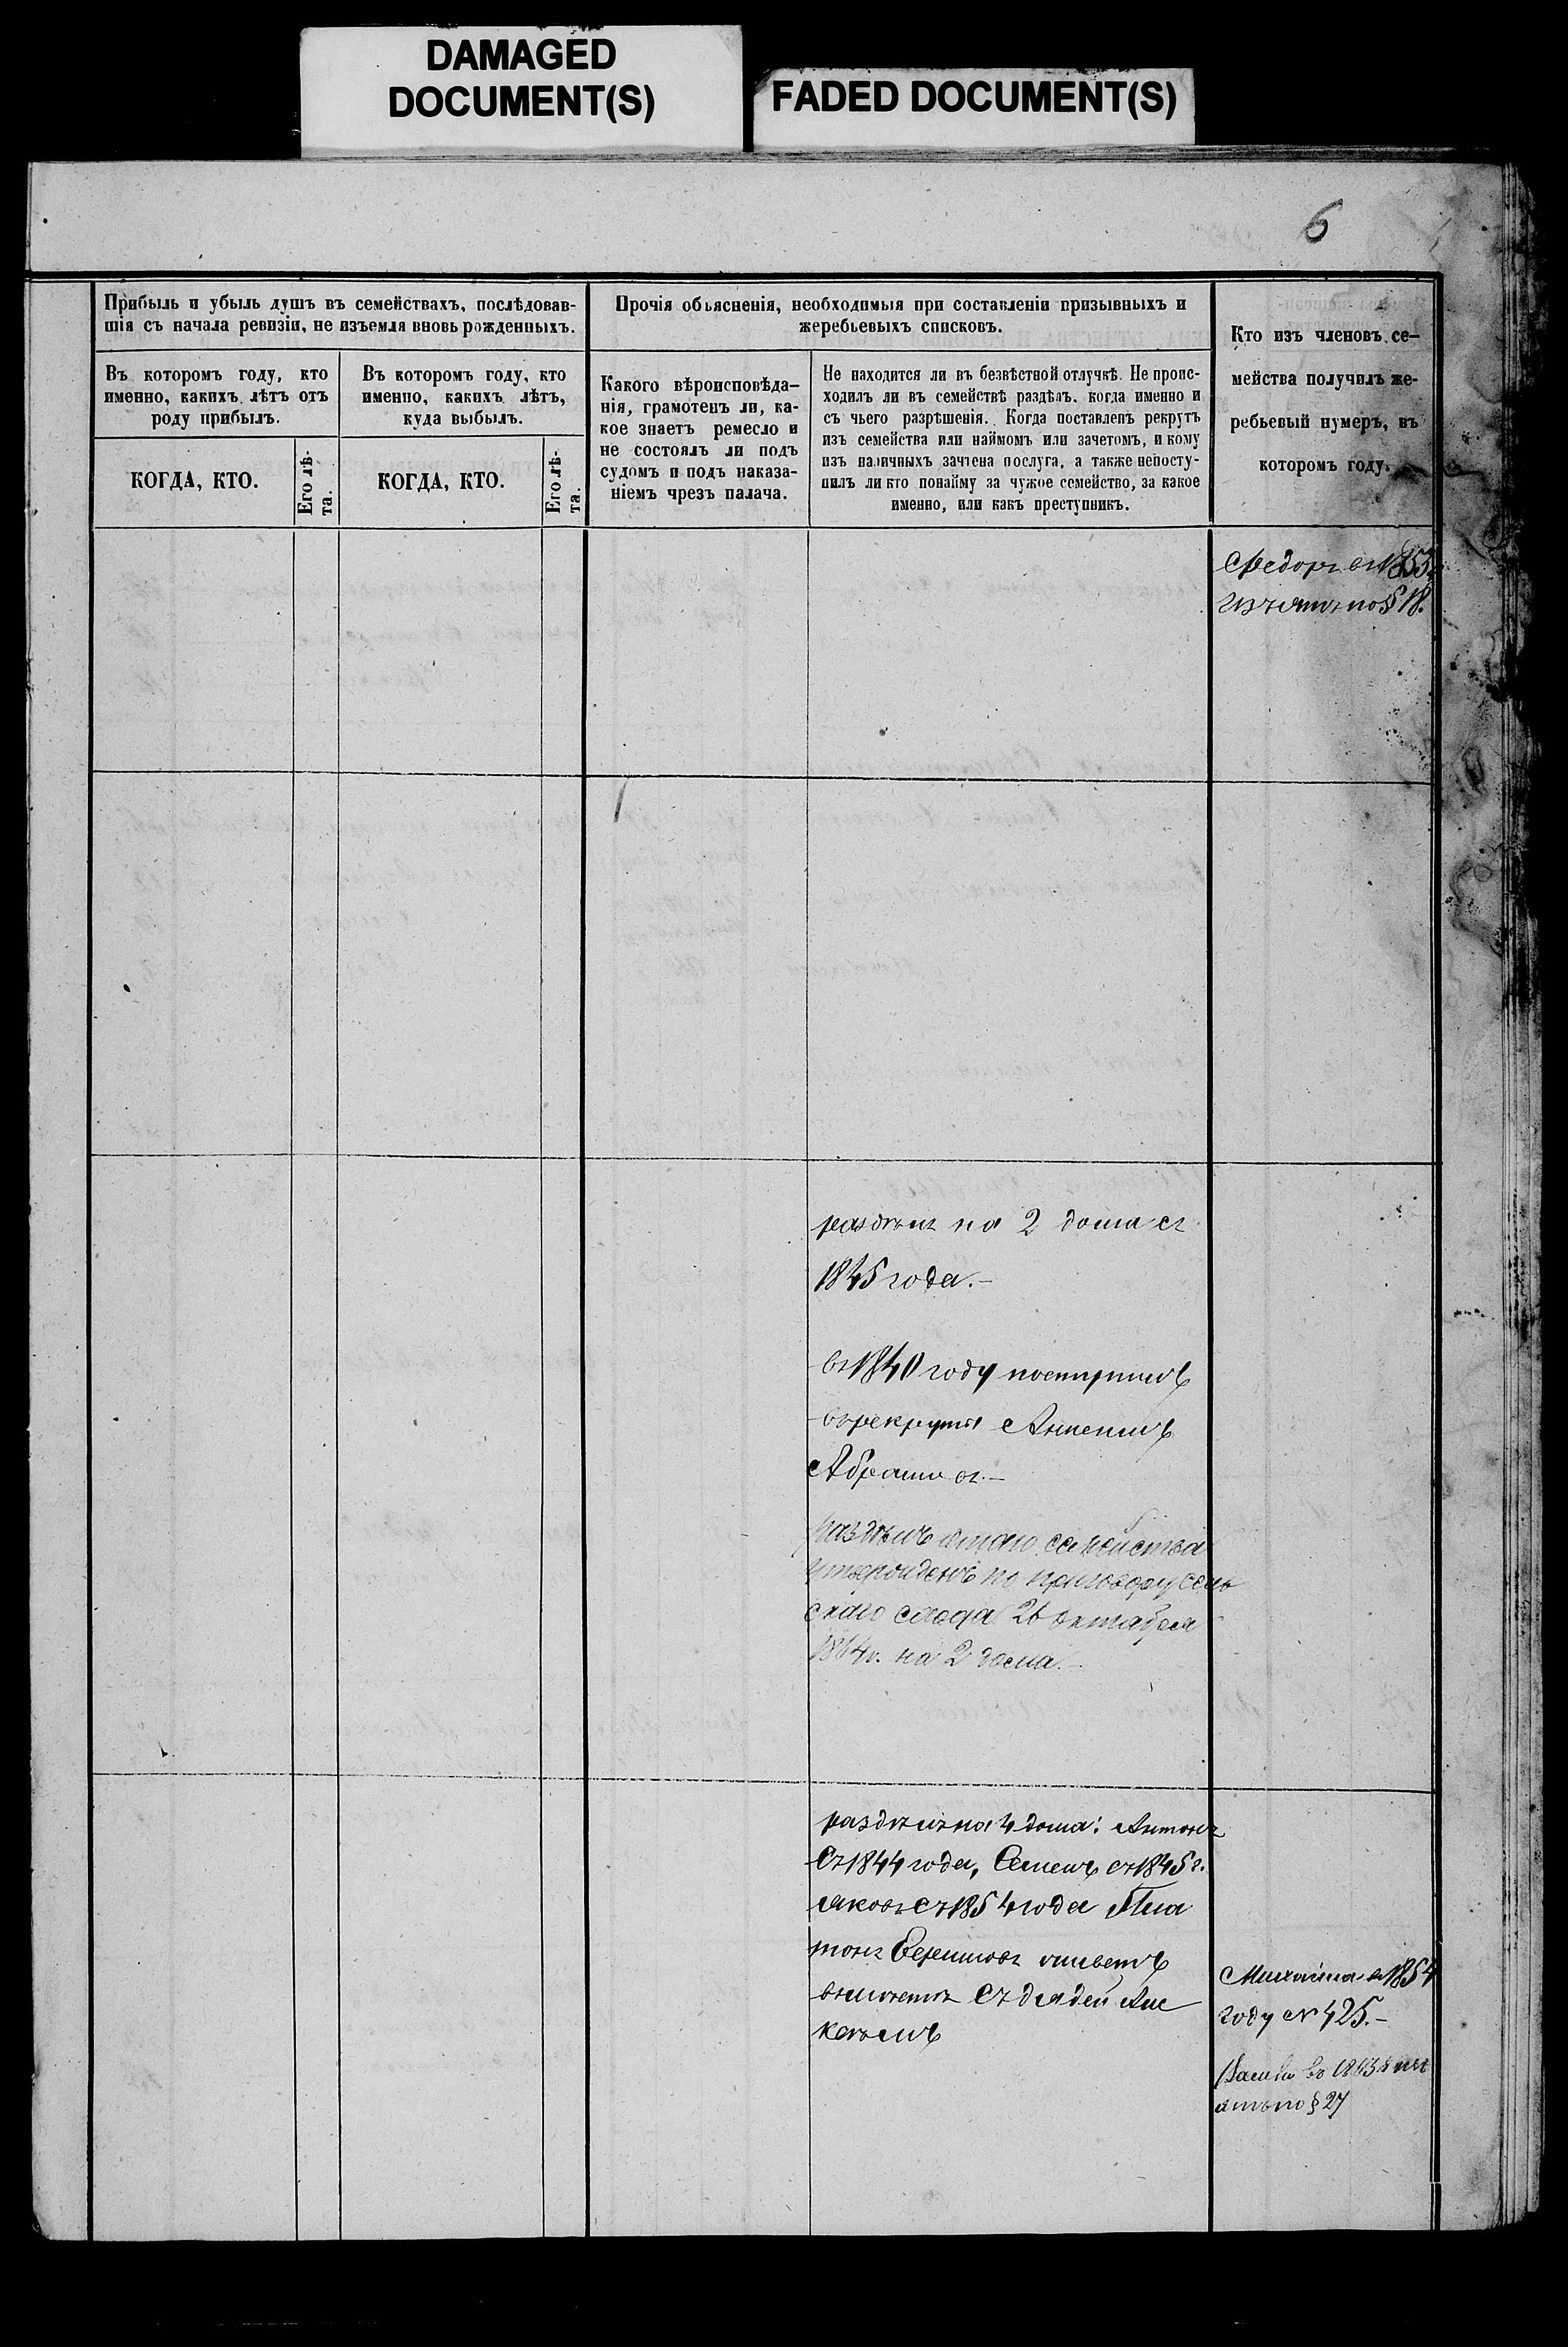 DAMAGED
DOCUMENT(S)
FADED DOCUMENT(S)
6
Прибыль и убыль душъ въ семействахъ, послѣдовав-
шія съ начала ревизіи, не изъемля вновь рожденныхъ.
Въ которомъ году, кто
именно, какихъ лѣтъ отъ
роду прибылъ.
КОГДА, КТО.
Его лѣ-
та.
Въ которомъ году, кто
именно, какихъ лѣтъ,
куда выбылъ.
КОГДА, КТО.
Его лѣ-
та.
Прочія объясненія, необходимыя при составленіи призывныхъ и
жеребьевыхъ списковъ.
Какого вѣроисповѣда-
нія, грамотенъ ли, ка-
кое знаетъ ремесло и
не состоялъ ли подъ
судомъ и подъ наказа-
ніемъ чрезъ палача.
Не находится ли въ безвѣстной отлучкѣ. Не проис-
ходилъ ли въ семействѣ раздѣлъ, когда именно и
съ чьего разрѣшенія. Когда поставленъ рекрутъ
изъ семейства или наймомъ или зачетомъ, и кому
изъ наличныхъ зачтена послуга, а также непосту-
пилъ ли кто понайму за чужое семейство, за какое
именно, или какъ преступникъ.
Кто изъ членовъ се-
мейства получилъ же-
ребьевый нумеръ, въ
которомъ году.
Федоръ въ 1853
изъятъ по § 18.
раздѣлъ на 2 дома съ
1845 года.-
въ 1840 году поступилъ
въ рекруты
Абрамовъ.-
раздѣлъ этаго семейства
утвержденъ по приговору сель
скаго схода 26 октября
на 2 дома.-
раздѣлъ на 4 дома: Антонъ
съ 1844 года, Семенъ съ 1845 г.
Яковъ съ 1854 года Пла
тонъ живетъ
вмѣстѣ съ дядей Але
ксѣемъ
Михайла въ 1854
году № 425.-
по § 27